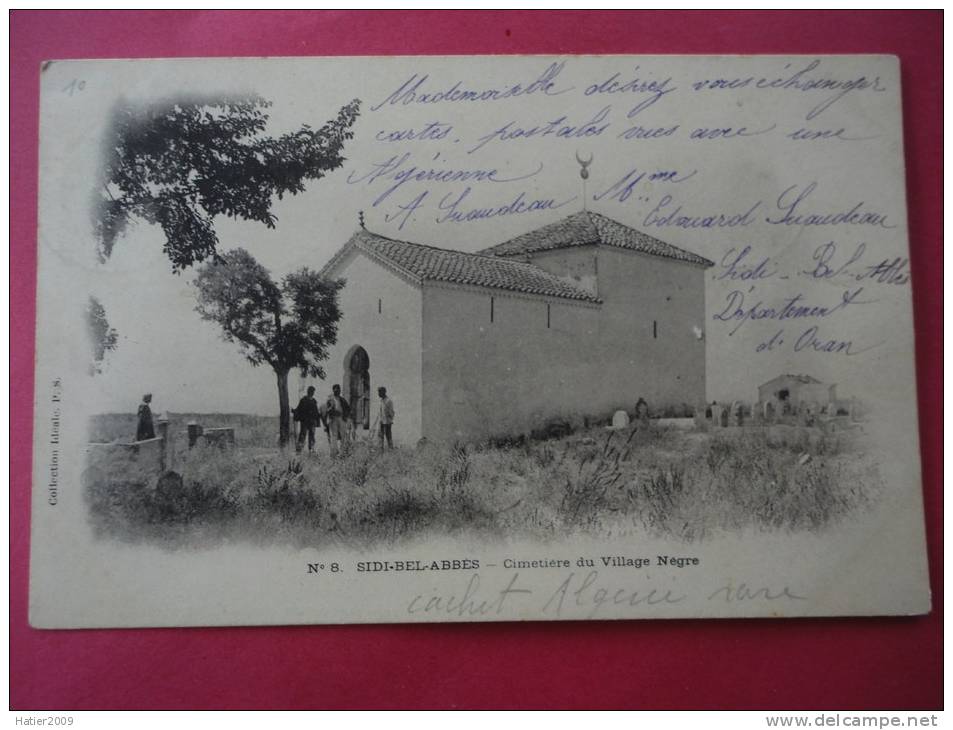 10
Mademoiselle désirez vous échanger
cartes. postales vues avec une
Algérienne
A. Suaudeau Mme
Edouard Suaudeau
Sidi-Bel-Abbès
Département
d'Oran
Collection Idéale. P. S.
No 8. SIDI-BEL-ABBÈS — Cimetière du Village Nègre
cachet Algerie rare
Hatier2009
www.delcampe.net